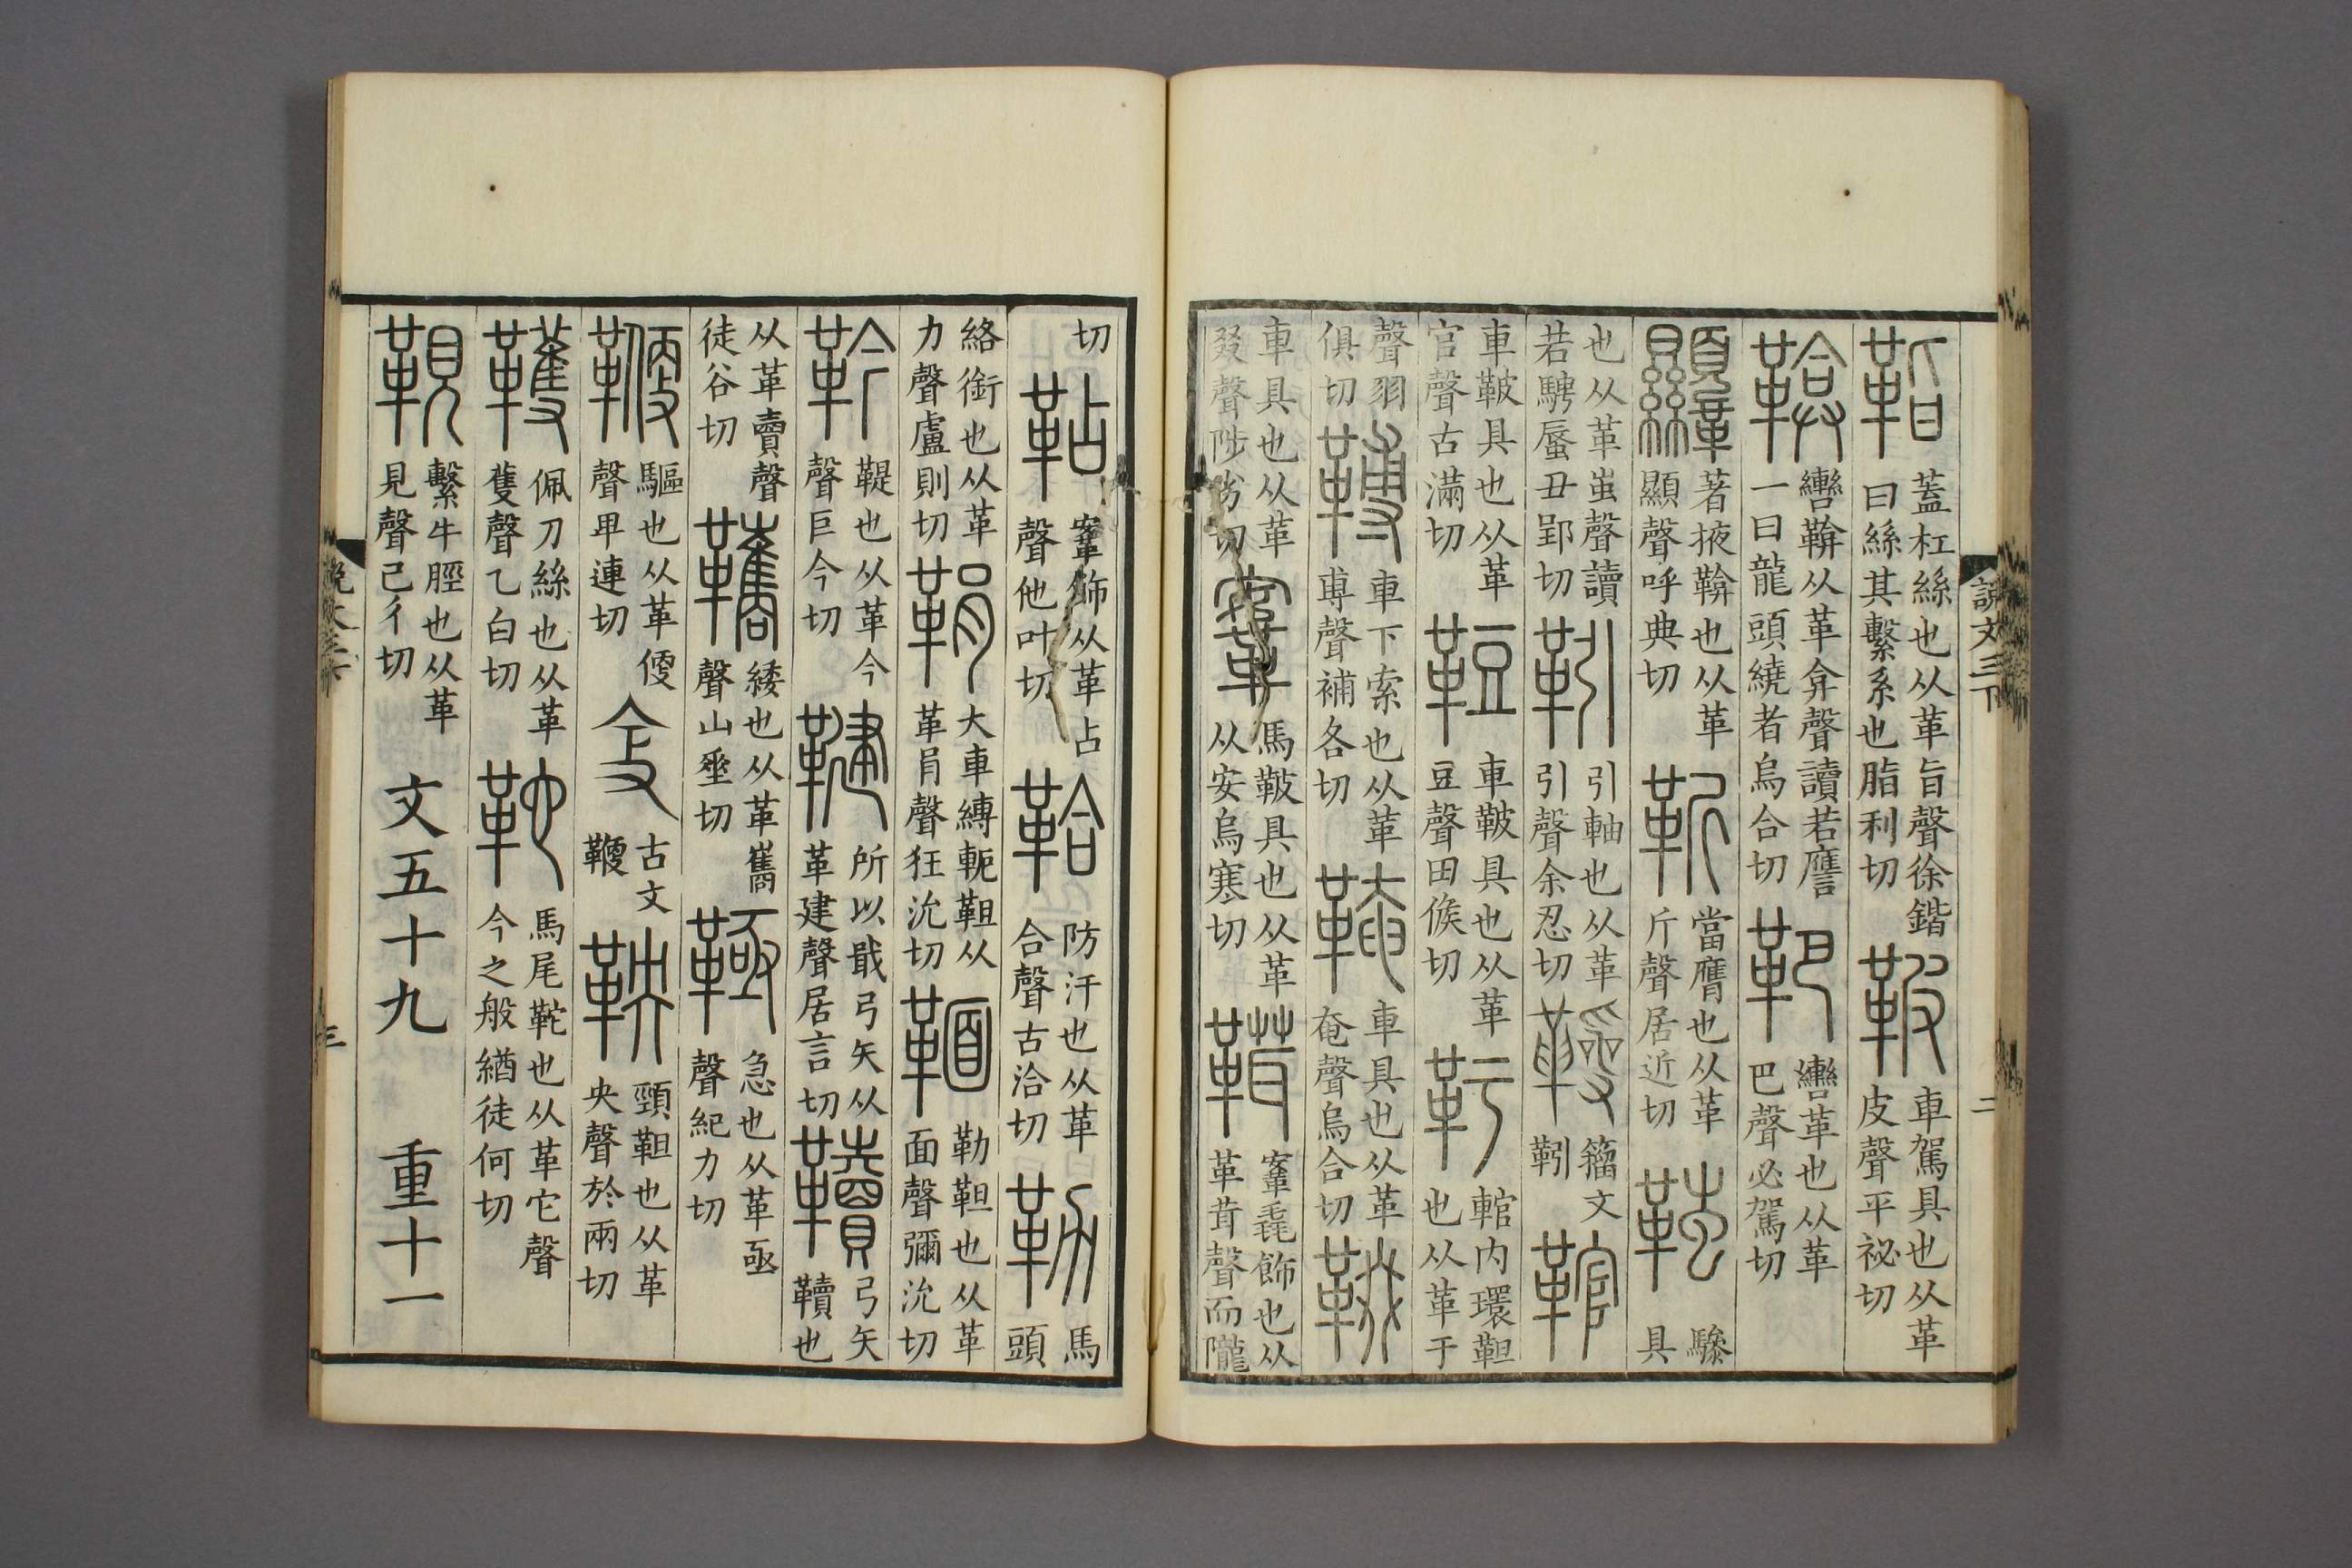 說文三下 二
𩊄 蓋杠絲也从革旨聲徐鍇曰絲其繫系也脂利切 鞁 車駕具也从革皮聲平祕切
鞥 轡鞥从革弇聲讀若譍一曰龍頭繞者烏合切 靶 轡革也从革巴聲必駕切
韅 著掖鞥也从革顯聲呼典切 靳 當膺也从革斤聲居近切 䩶 驂具
也从革蚩聲讀若騁蜃丑郢切 靷 引軸也从革引聲余忍切 籀文靷 䩪
車鞁具也从革官聲古滿切 䩺 車鞁具也从革豆聲田候切 䩒 輨内環靼也从革于
聲羽俱切 䪙 車下索也从革尃聲補各切 䩭 車具也从革奄聲烏合切 𩋁
車具也从革叕聲陟劣切 鞌 馬鞁具也从革从安烏寒切 鞲 鞌毳飾也从革茸聲而隴
切 鞊 鞌飾从革占聲他叶切 鞈 防汗也从革合聲古洽切 勒 馬頭
絡銜也从革力聲盧則切 鞙 大車縛軛靼从革肙聲狂沇切 䩏 勒靼也从革面聲彌沇切
䩂 鞮也从革今聲巨今切 鞬 所以戢弓矢从革建聲居言切 韇 弓矢韇也
从革賣聲徒谷切 韉 緌也从革巂聲山垂切 䩯 急也从革亟聲紀力切
鞭 驅也从革㛹聲卑連切 古文鞭 鞅 頸靼也从革央聲於兩切
韄 佩刀絲也从革隻聲乙白切 䩜 馬尾鞁也从革它聲今之般緧徒何切
䩤 繫牛脛也从革見聲己彳切 文五十九 重十一